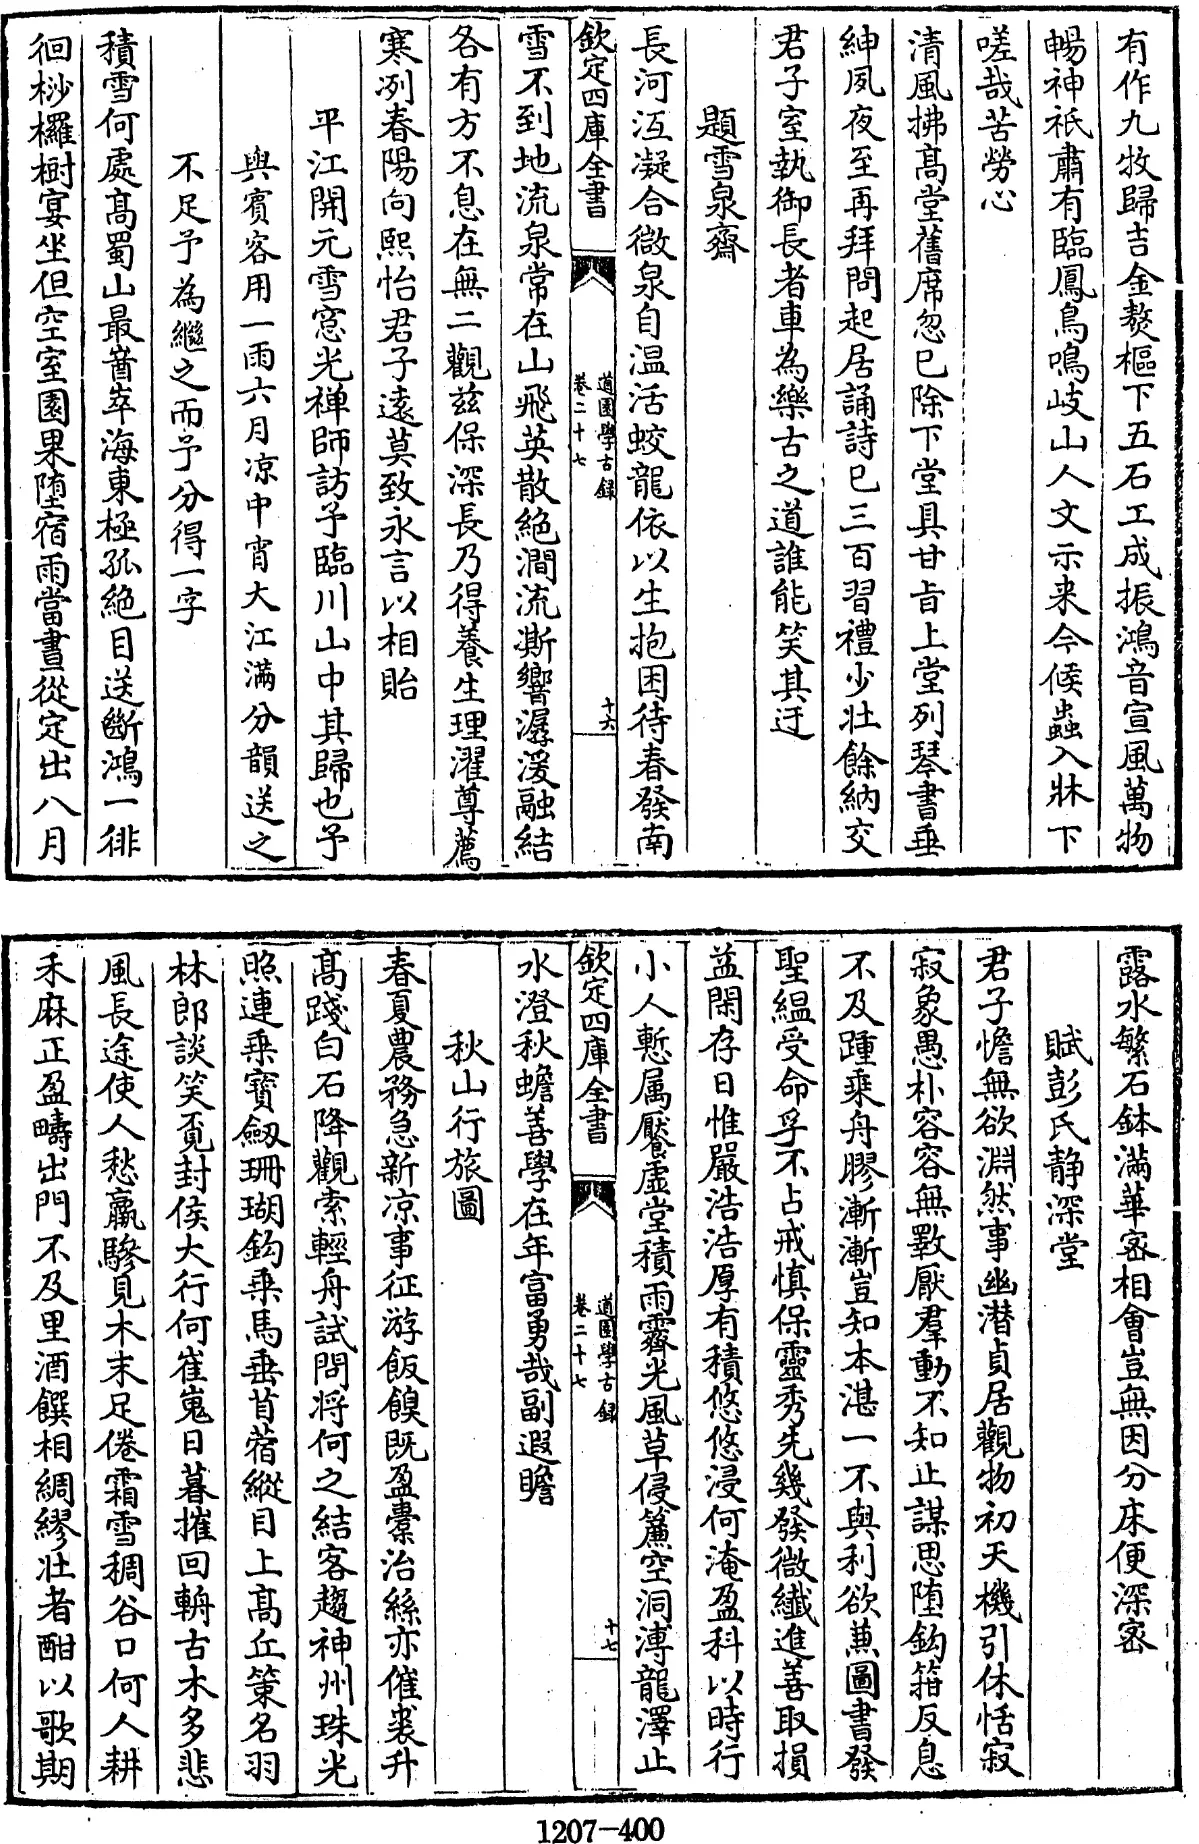 有作九牧歸吉金㷅樞下五石工成振鴻音宣風萬物
暢神祇肅有臨鳳鳥鳴岐山人文示来今候蟲入牀下
嗟哉苦勞心
清風拂髙堂舊席忽已除下堂具甘㫖上堂列琴書垂
紳夙夜至再拜問起居誦詩已三百習禮少壯餘納交
君子室執御長者車為樂古之道誰能笑其迂
題雪泉齋
長河沍凝合微泉自温活蛟龍依以生抱困待春發南
欽定四庫全書
道園學古録
卷二十七
十六
雪不到地流泉常在山飛英散絶澗流澌響潺湲融結
各有方不息在無二觀兹保深長乃得養生理濯尊薦
寒冽春陽向熙怡君子遠莫致永言以相貽
平江開元雪窓光禅師訪予臨川山中其歸也予
與賓客用一雨六月凉中宵大江滿分韻送之
不足予為繼之而予分得一字
積雪何處髙蜀山最崷崒海東極孤絶目送斷鴻一徘
徊桫欏樹宴坐但空室園果堕宿雨當晝從定出八月
露水繁石鉢滿華宻相會豈無因分床便深宻
賦彭氏静深堂
君子憺無欲淵然事幽潜貞居觀物初天機引休恬寂
寂象愚朴容容無斁厭羣動不知止謀思堕鈎箝反息
不及踵乘舟膠漸漸豈知本湛一不與利欲兼圖書發
聖緼受命孚不占戒慎保靈秀先幾發微纎進善取損
益閑存日惟嚴浩浩厚有積悠悠浸何淹盈科以時行
小人慙属饜虚堂積雨霽光風草侵簾空洞漙龍澤止
欽定四庫全書
道園學古録
卷二十七
十七
水澄秋蟾善學在年富勇哉副遐瞻
秋山行旅圖
春夏農務急新凉事征游飯餱既盈橐治絲亦催裘升
髙踐白石降觀索輕舟試問将何之結客趨神州珠光
照連乗寳劔珊瑚鈎乗馬垂苜蓿縱目上髙丘䇿名羽
林郎談笑覔封侯大行何崔嵬日暮摧回輈古木多悲
風長途使人愁羸驂見木末足倦霜雪稠谷口何人耕
禾麻正盈疇出門不及里酒饌相綢繆壮者酣以歌期
1207-400